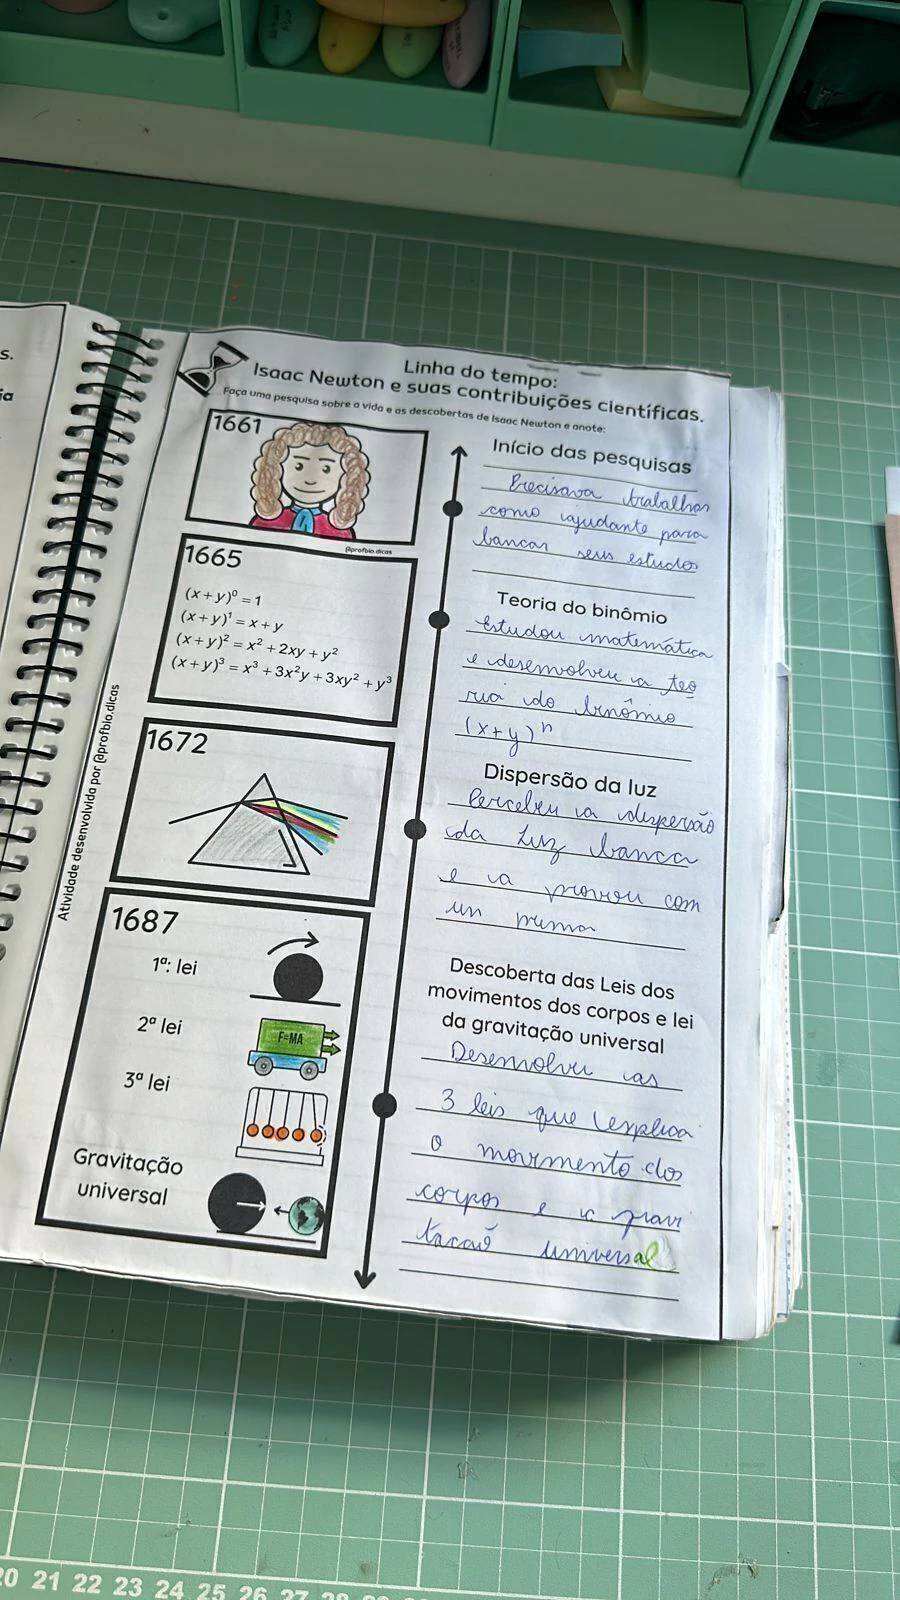 s.
ia
Linha do tempo:
Isaac Newton e suas contribuições científicas.
Faça uma pesquisa sobre a vida e as descobertas de Isaac Newton e anote:
1661
@profbio.dicas
Início das pesquisas
Precisava trabalhar
como ajudante para
bancar seus estudos
1665
(x+y)⁰ = 1
(x+y)¹ = x+y
(x+y)² = x² + 2xy + y²
(x+y)³ = x³ + 3x²y + 3xy² + y³
Teoria do binômio
Estudou matemática
e desenvolveu a teo
ria do binômio
(x+y)ⁿ
1672
Dispersão da luz
Percebeu a dispersão
da Luz banca
e a provou com
un prisma
1687
1ª: lei
2ª lei
F=MA
3ª lei
Gravitação
universal
Descoberta das Leis dos
movimentos dos corpos e lei
da gravitação universal
Desenvolveu as
3 leis que explica
o movimento dos
corpos e a gravi
tacaõ universal
Atividade desenvolvida por @profbio.dicas
20 21 22 23 24 25 26 27 28